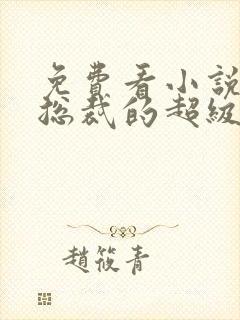 免費看小說
総裁的超級
趙筱青